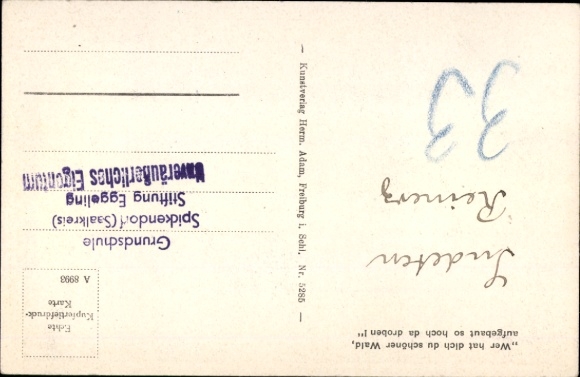 „Wer hat dich du schöner Wald,
aufgebaut so hoch da droben!"
Sudeten
Reinerz
33
— Kunstverlag Herm. Adam, Freiburg i. Schl. Nr. 5285 —
Echte
Kupfertiefdruck-
Karte
A 8993
Grundschule
Spickendorf (Saalkreis)
Stiftung Eggeling
Unveräußerliches Eigentum